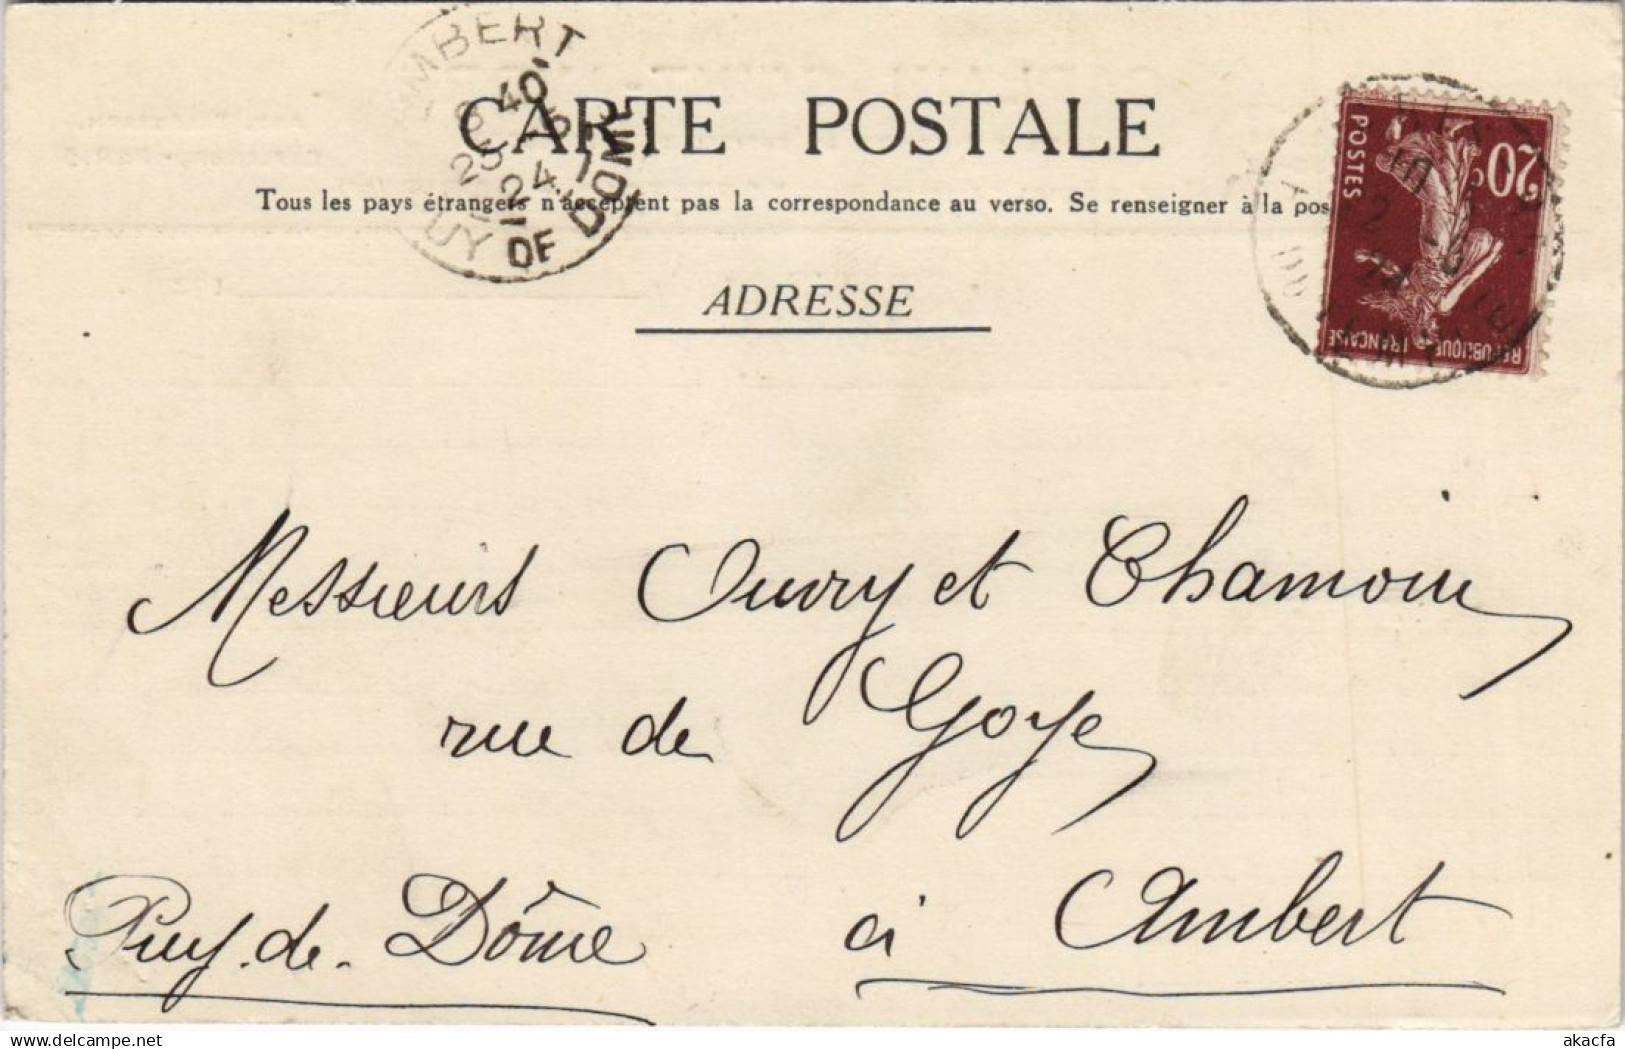 AMBERT
8 40
25 2
24
PUY DE DOME
CARTE POSTALE
Tous les pays étrangers n'acceptent pas la correspondance au verso. Se renseigner à la pos
ADRESSE
20c
POSTES
REPUBLIQUE FRANCAISE
Messieurs Ouvry et Chamoin
rue de Goye
à Ambert
Puy-de-Dôme
akacfa
delcampe.net